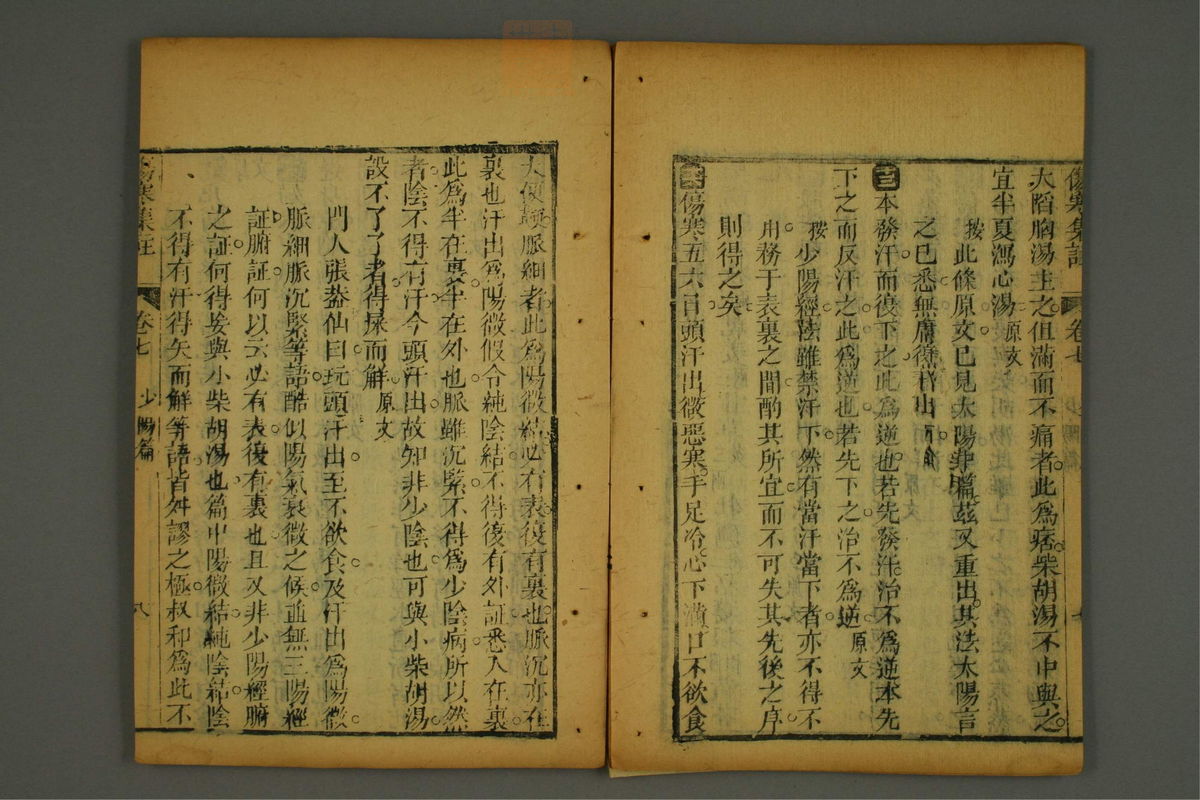 傷寒集註 卷七
大陷胸湯主之但滿而不痛者此爲痞柴胡湯不中與之
宜半夏瀉心湯原文
按此條原文已見太陽茲又重出其法太陽言
之已悉無庸
本發汗而復下之此爲逆也若先發汗治不爲逆本先
下之而反汗之此爲逆也若先下之治不爲逆原文
按少陽經法雖禁汗下然有當汗當下者亦不得不
用務于表裏之間酌其所宜而不可失其先後之序
則得之矣
傷寒五六日頭汗出微惡寒手足冷心下滿口不欲食
大便鞕脈細者此爲陽微結必有表復有裏也脈沉亦在
裏也汗出爲陽微假令純陰結不得復有外証悉入在裏
此爲半在裏半在外也脈雖沉緊不得爲少陰病所以然
者陰不得有汗今頭汗出故知非少陰也可與小柴胡湯
設不了了者得屎而解原文
門人張蓋仙曰玩頭汗出至不欲食及汗出爲陽微
脈細脈沉緊等語酷似陽氣衰微之候並無三陽經
証腑証何以云必有表復有裏也且又非少陽經腑
之証何得妄與小柴胡湯也篇中陽微結純陰結陰
不得有汗得矢而解等語皆舛謬之極叔和爲此不
傷寒集註 卷七 少陽篇 八